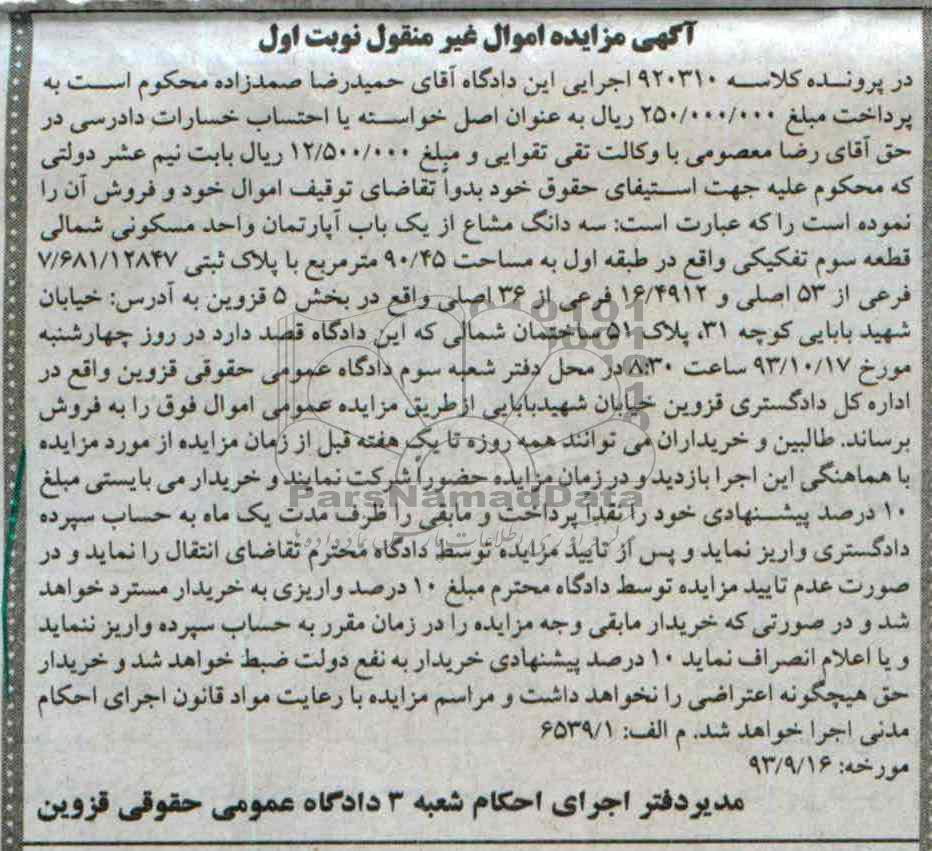 آگهی مزایده اموال غیر منقول نوبت اول
در پرونده کلاسه ۹۲۰۳۱۰ اجرایی این دادگاه آقای حمیدرضا صمدزاده محکوم است به
پرداخت مبلغ ۲۵۰/۰۰۰/۰۰۰ ریال به عنوان اصل خواسته یا احتساب خسارات دادرسی در
حق آقای رضا معصومی با وکالت تقی تقوایی و مبلغ ۱۲/۵۰۰/۰۰۰ ریال بابت نیم عشر دولتی
که محکوم علیه جهت استیفای حقوق خود بدواً تقاضای توقیف اموال خود و فروش آن را
نموده است را که عبارت است: سه دانگ مشاع از یک باب آپارتمان واحد مسکونی شمالی
قطعه سوم تفکیکی واقع در طبقه اول به مساحت ۹۰/۴۵ مترمربع با پلاک ثبتی ۷/۶۸۱/۱۲۸۴۷
فرعی از ۵۳ اصلی و ۱۶/۴۹۱۲ فرعی از ۳۶ اصلی واقع در بخش ۵ قزوین به آدرس: خیابان
شهید بابایی کوچه ۳۱، پلاک ۵۱ ساختمان شمالی که این دادگاه قصد دارد در روز چهارشنبه
مورخ ۹۳/۱۰/۱۷ ساعت ۸:۳۰ در محل دفتر شعبه سوم دادگاه عمومی حقوقی قزوین واقع در
اداره کل دادگستری قزوین خیابان شهیدبابایی ازطریق مزایده عمومی اموال فوق را به فروش
برساند. طالبین و خریداران می توانند همه روزه تا یک هفته قبل از زمان مزایده از مورد مزایده
با هماهنگی این اجرا بازدید و در زمان مزایده حضوراً شرکت نمایند و خریدار می بایستی مبلغ
۱۰ درصد پیشنهادی خود را نقداً پرداخت و مابقی را ظرف مدت یک ماه به حساب سپرده
دادگستری واریز نماید و پس از تایید مزایده توسط دادگاه محترم تقاضای انتقال را نماید و در
صورت عدم تایید مزایده توسط دادگاه محترم مبلغ ۱۰ درصد واریزی به خریدار مسترد خواهد
شد و در صورتی که خریدار مابقی وجه مزایده را در زمان مقرر به حساب سپرده واریز ننماید
و یا اعلام انصراف نماید ۱۰ درصد پیشنهادی خریدار به نفع دولت ضبط خواهد شد و خریدار
حق هیچگونه اعتراضی را نخواهد داشت و مراسم مزایده با رعایت مواد قانون اجرای احکام
مدنی اجرا خواهد شد. م الف: ۶۵۳۹/۱
مورخه: ۹۳/۹/۱۶
مدیردفتر اجرای احکام شعبه ۳ دادگاه عمومی حقوقی قزوین
ParsNamadData